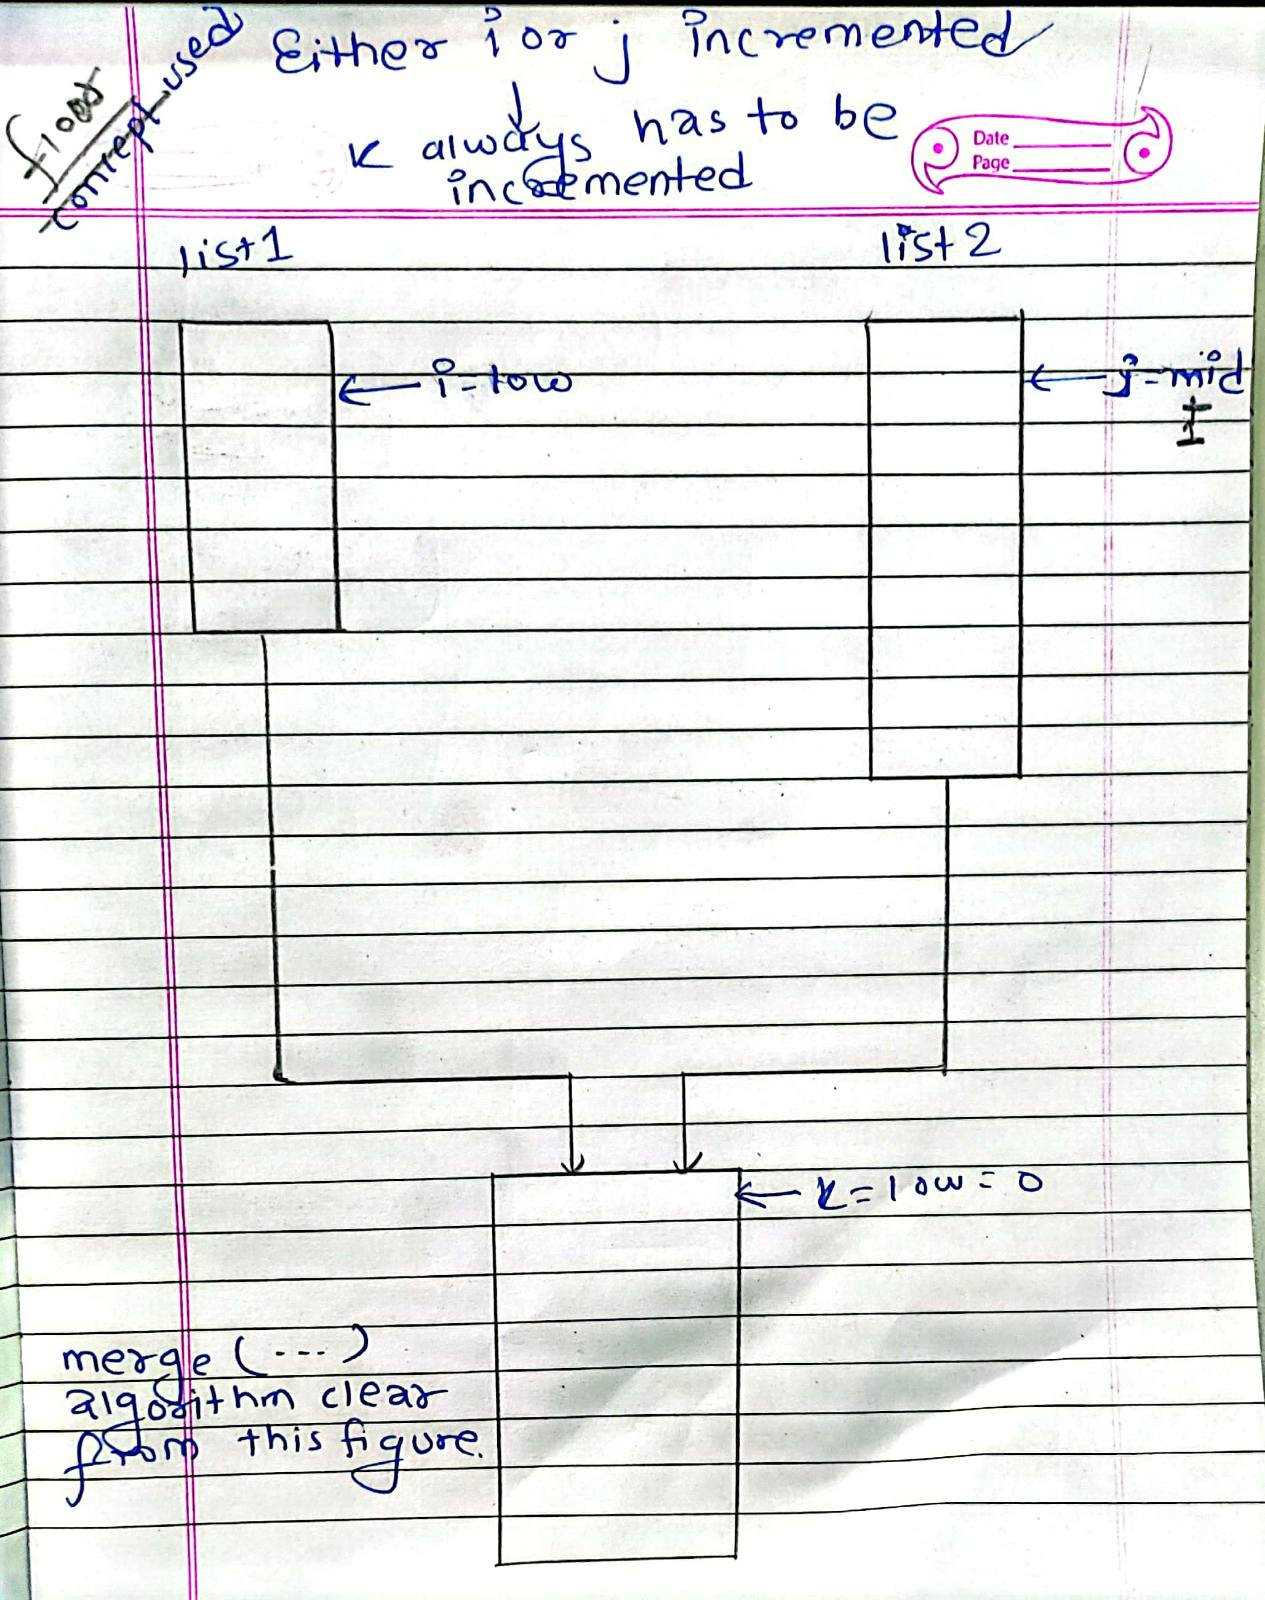 floor
concept used
Either i or j incremented
↓
K always has to be
incremented
Date
Page
list 1
list 2
← i = low
← j = mid
+
1
← k = low = 0
merge (...)
algorithm clear
from this figure.